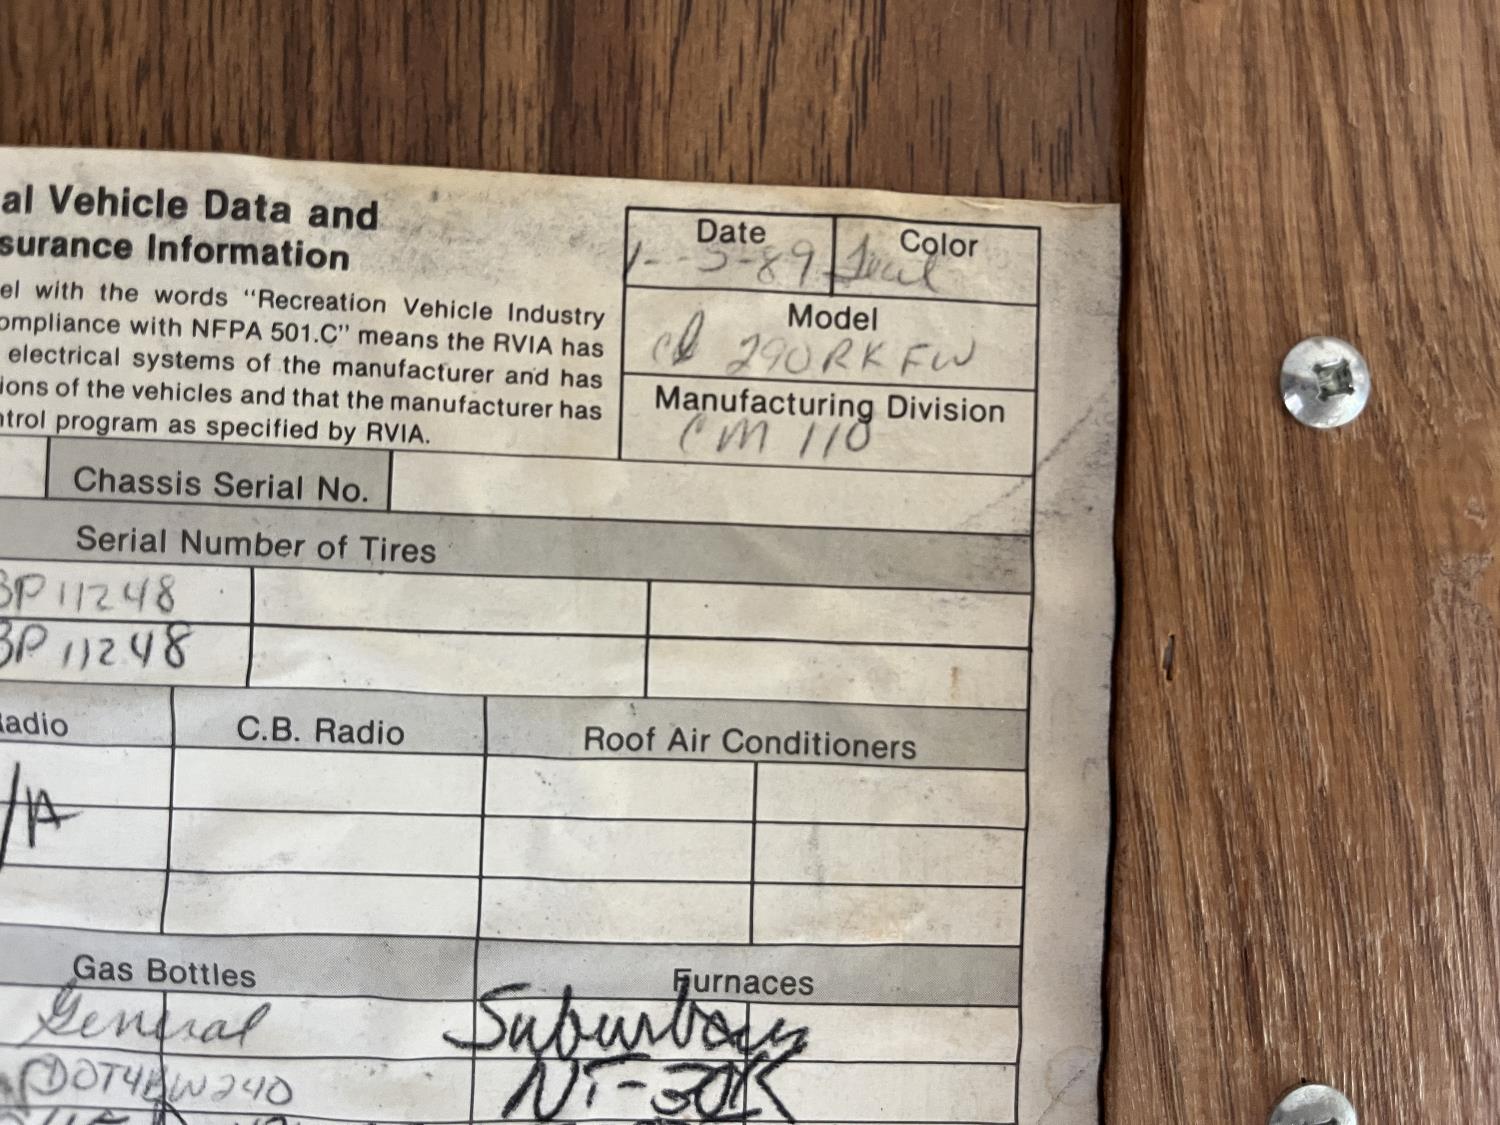 al Vehicle Data and
surance Information
el with the words "Recreation Vehicle Industry
ompliance with NFPA 501.C" means the RVIA has
electrical systems of the manufacturer and has
ions of the vehicles and that the manufacturer has
ntrol program as specified by RVIA.
Date
1--5-89
Color
Teal
Model
290RKFW
Manufacturing Division
CM 110
Chassis Serial No.
Serial Number of Tires
BP11248
BP11248
Radio
C.B. Radio
Roof Air Conditioners
/A
Gas Bottles
Furnaces
General
Suburban
DOT4BW240
NT-30K